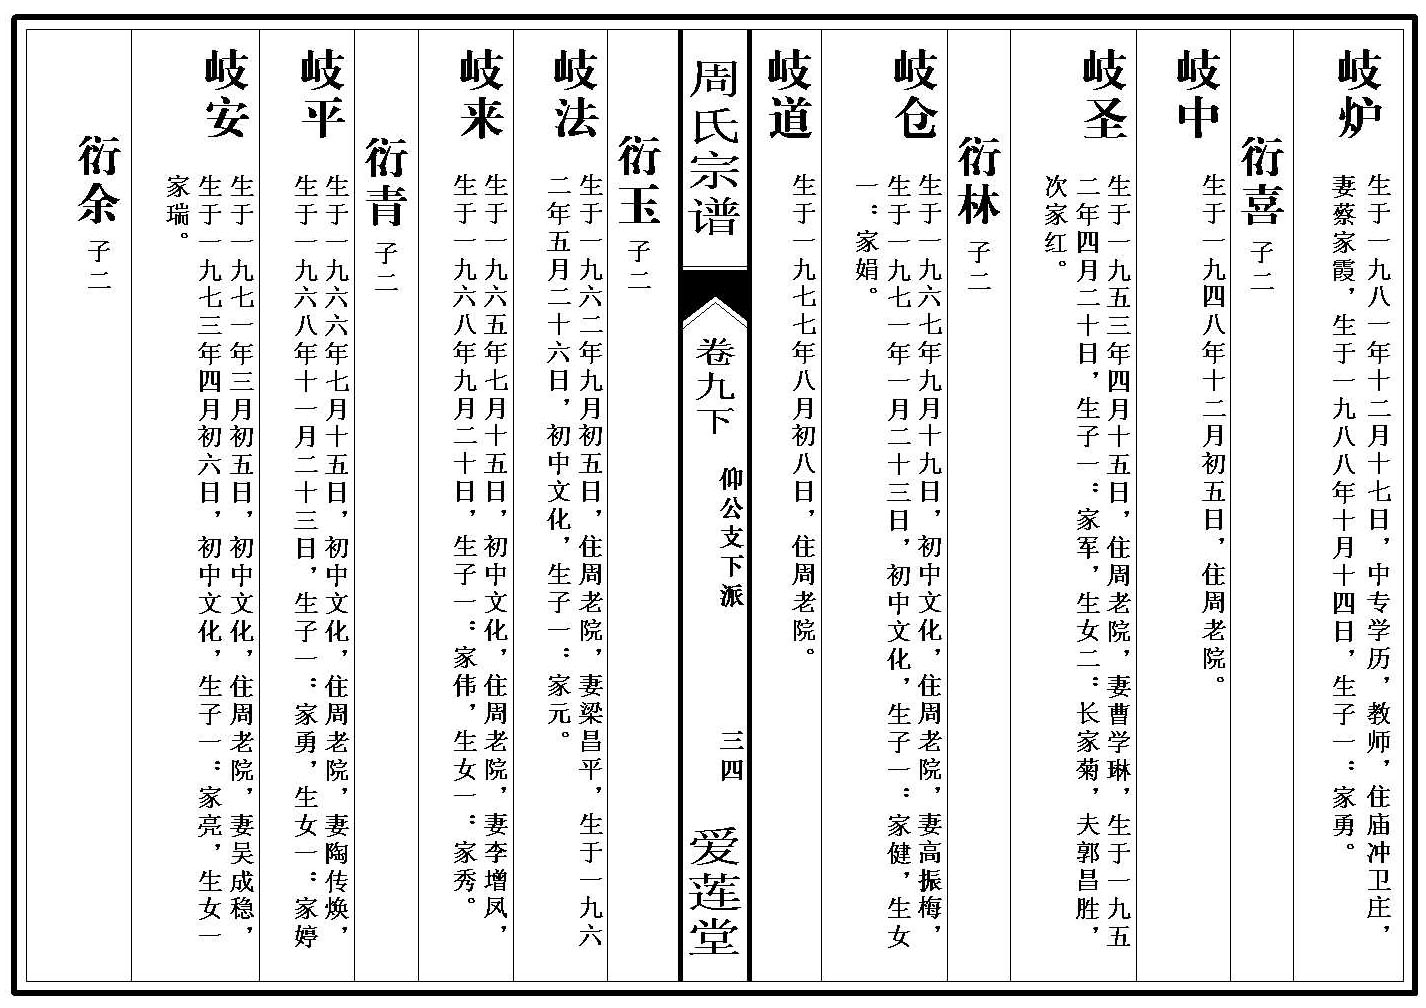 岐炉
生于一九八一年十二月十七日，中专学历，教师，住庙冲卫庄，
妻蔡家霞，生于一九八八年十月十四日，生子一：家勇。
衍喜 子二
岐中
生于一九四八年十二月初五日，住周老院。
岐圣
生于一九五三年四月十五日，住周老院，妻曹学琳，生于一九五
二年四月二十日，生子一：家军，生女二：长家菊，夫郭昌胜，
次家红。
衍林 子二
岐仓
生于一九六七年九月十九日，初中文化，住周老院，妻高振梅，
生于一九七一年一月二十三日，初中文化，生子一：家健，生女
一：家娟。
岐道
生于一九七七年八月初八日，住周老院。
周氏宗谱
卷九下
仰公支下派
三四
爱莲堂
衍玉 子二
岐法
生于一九六二年九月初五日，住周老院，妻梁昌平，生于一九六
二年五月二十六日，初中文化，生子一：家元。
岐来
生于一九六五年七月十五日，初中文化，住周老院，妻李增凤，
生于一九六八年九月二十日，生子一：家伟，生女一：家秀。
衍青 子二
岐平
生于一九六六年七月十五日，初中文化，住周老院，妻陶传焕，
生于一九六八年十一月二十三日，生子一：家勇，生女一：家婷
岐安
生于一九七一年三月初五日，初中文化，住周老院，妻吴成稳，
生于一九七三年四月初六日，初中文化，生子一：家亮，生女一
家瑞。
衍余 子二